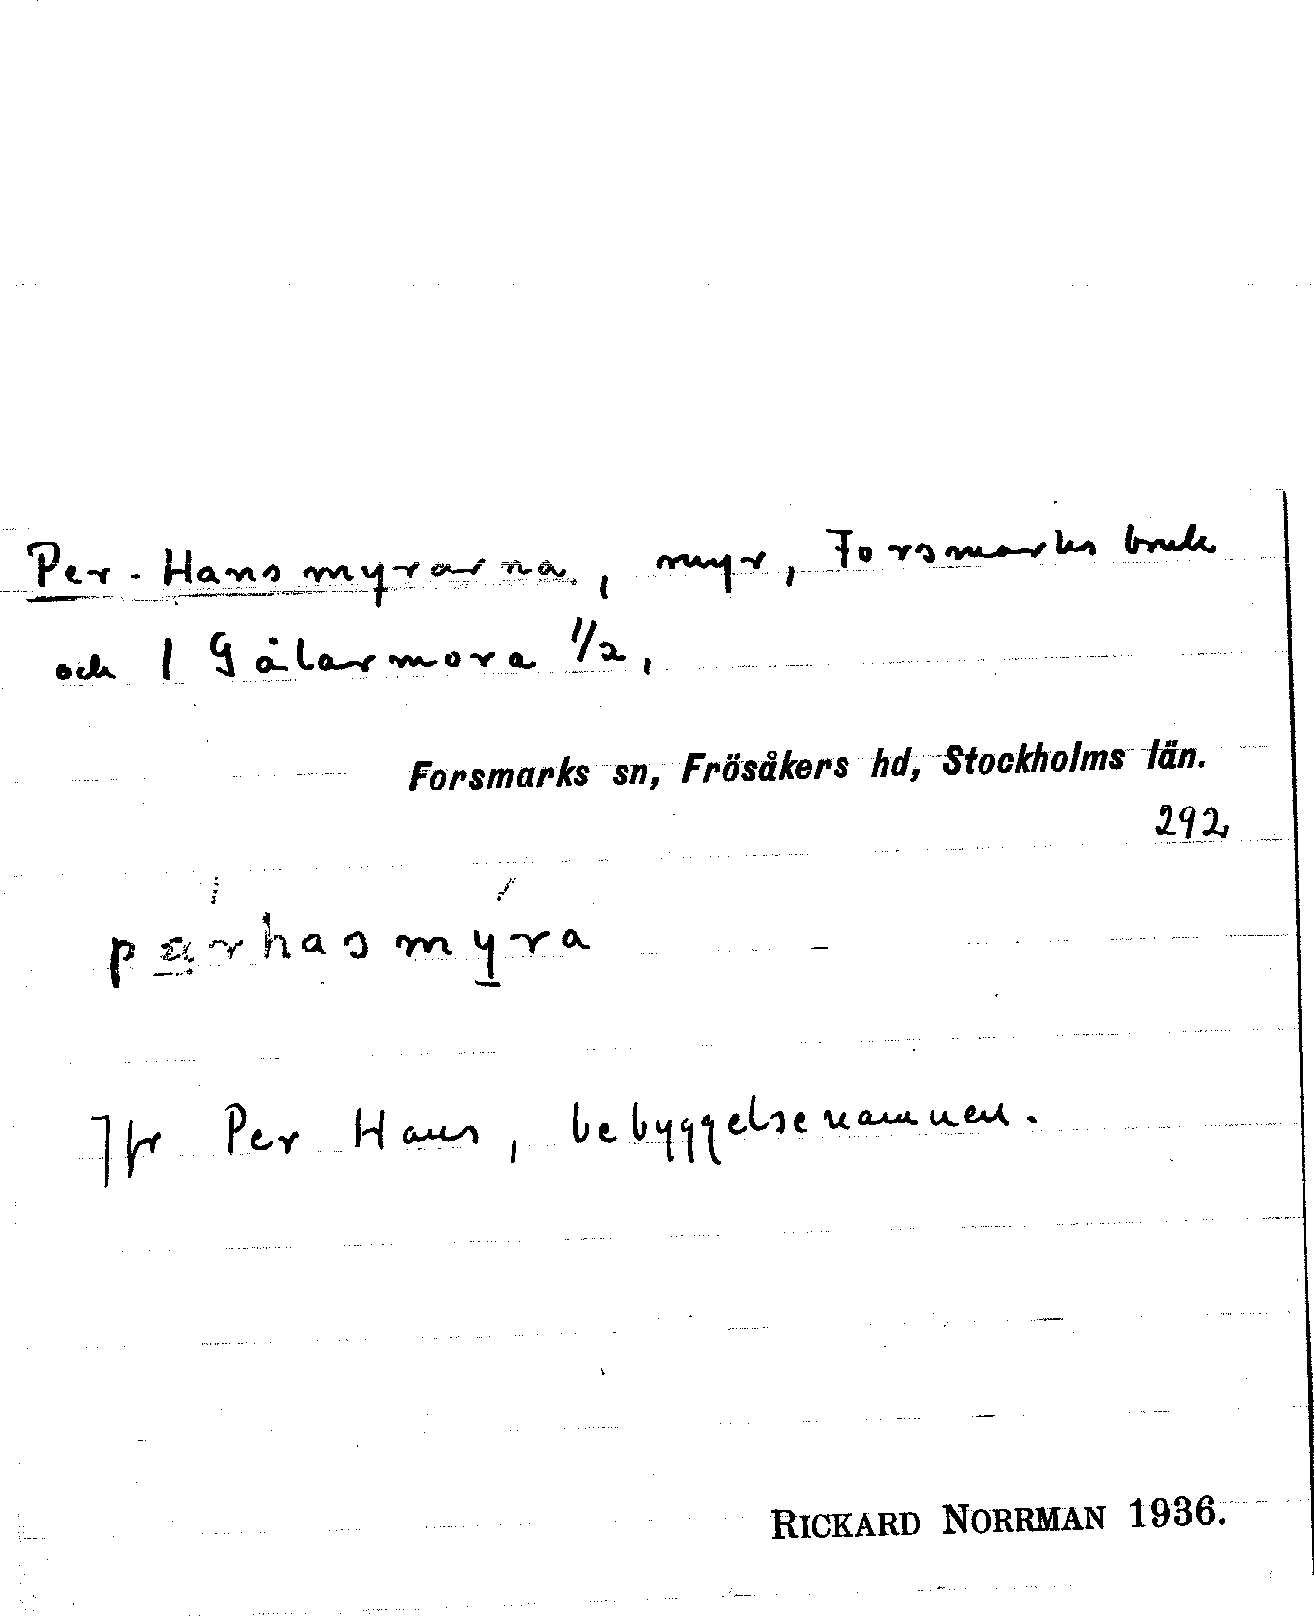 Per-Hansmyrarna, myr, Forsmarks bruk
och 1 Gålarmora 1/2,
Forsmarks sn, Frösåkers hd, Stockholms län.
292
pärhasmýra
Jfr Per Hans, bebyggelsenamnen.
RICKARD NORRMAN 1936.